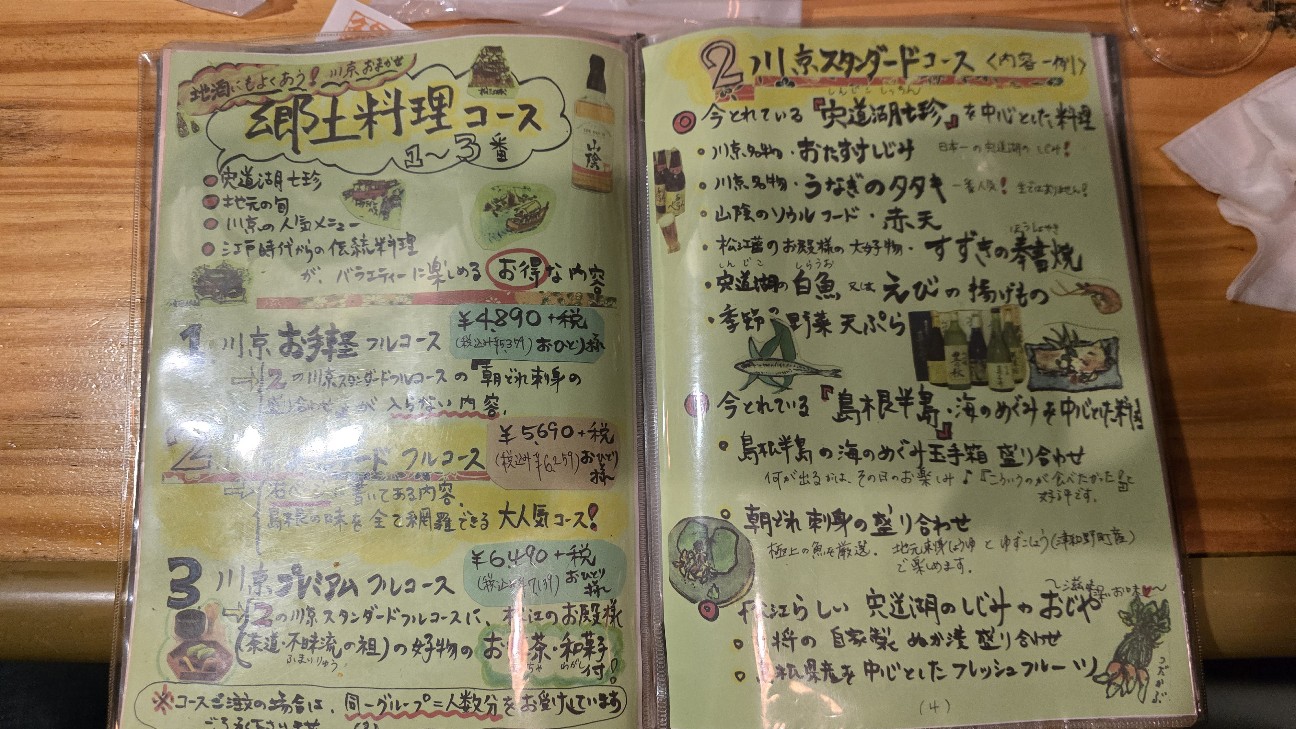 地酒にもよくあう! 川京おまかせ
郷土料理コース
1〜3番
山陰
宍道湖七珍
地元の旬
川京の人気メニュー
江戸時代からの伝統料理
が、バラエティーに楽しめるお得な内容。
1 川京お手軽フルコース
¥4,890+税
(税込み¥5,379) おひとり様
2の川京スタンダードフルコースの『朝どれ刺身の
盛り合わせ』が入らない内容。
2 フルコース
¥5,690+税
(税込み¥6,259) おひとり様
書いてある内容。
島根の味を全て網羅できる大人気コース!
3 川京プレミアムフルコース
¥6,490+税
(税込み¥7,139) おひとり様
2の川京スタンダードフルコースに、松江のお殿様
(茶道・不昧流の祖)の好物のお茶・和菓子
ふまいりゅう
ちゃ わがし
付!
※コースご注文の場合は、同一グループ=人数分をお受けしています
(3)
2 川京スタンダードコース〈内容一例〉
しんじこ しっちん
今とれている『宍道湖七珍』を中心とした料理
・川京名物・おたすけしじみ 日本一の宍道湖のしじみ!
・川京名物・うなぎのタタキ 一番人気! 生ではありません!
・山陰のソウルフード・赤天
ほうしょやき
・松江藩のお殿様の大好物・すずきの奉書焼
しんじこ しらうお
・宍道湖の白魚 又は えびの揚げもの
・季節の野菜天ぷら
今とれている『島根半島・海のめぐみ』を中心とした料理
・島根半島の海のめぐみ玉手箱 盛り合わせ
何が出るかは、その日のお楽しみ♪
朝どれ刺身の盛り合わせ
極上の魚を厳選。地元来待しょうゆとゆずこしょう(津和野町産)
で楽しめます。
松江らしい 宍道湖のしじみのおじや
大将の自家製 ぬか漬盛り合わせ
島根県産を中心としたフレッシュフルーツ
つだかぶ
(4)